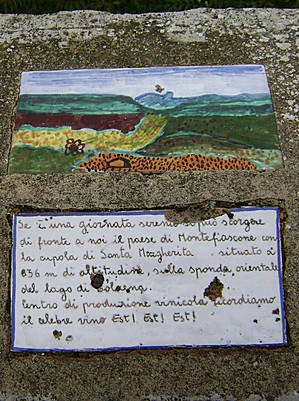 Se è una giornata serena si può scorgere
di fronte a noi il paese di Montefiascone con
la cupola di Santa Margherita situato a
636 m di altitudine, sulla sponda orientale
del lago di Bolsena.
Centro di produzione vinicola ricordiamo
il celebre vino Est! Est! Est!